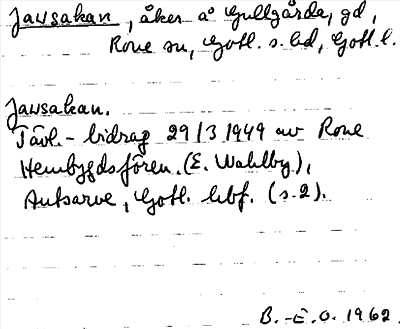 Jausakan, åker å Gullgårda, gd,
Rone sn, Gotl. s. hd, Gotl. l.
Jausakan.
Tävl.-bidrag 29/3 1949 av Rone
Hembygdsfören. (E. Wahlby),
Autsarve, Gotl. hbf. (s. 2).
B.-E. O. 1962